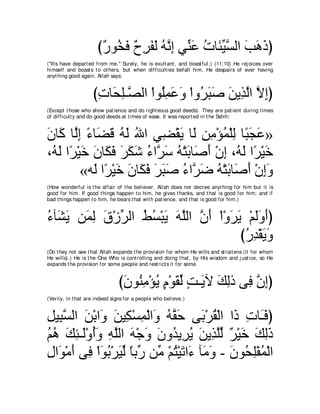 (ذَهَبَ السَّيِّئَاتُ عَنِّي إِنَّهُ لَفَرِحٌ فَخُورٌ)
("Ills have departed from me.'' Surely, he is exultant, and boastful.) (11:10) He rejoices over
himself and boasts to others, but when difficulties befall him, He despairs of ever having
anything good again. Allah says:
(إِلاَّ الَّذِينَ صَبَرُواْ وَعَمِلُواْ الصَّـلِحَاتِ)
(Except those who show patience and do righteous good deeds). They are patient during times
of difficulty and do good deeds at times of ease. It was reported in the Sahih:
«عَجَبًا لِلْمُؤْمِنِ لَا يَقْضِي اللهُ لَهُ قَضَاءً إِلَّا كَانَ
خَيْرًا لَهُ، إِنْ أَصَابَتْهُ سَرَّاءُ شَكَرَ فَكَانَ خَيْرًا لَهُ،
وَإِنْ أَصَابَتْهُ ضَرَّاءُ صَبَرَ فَكَانَ خَيْرًا لَه»
(How wonderful is the affair of the believer. Allah does not decree anything for him but it is
good for him. If good things happen to him, he gives thanks, and that is good for him; and if
bad things happen to him, he bears that with patience. and that is good for him.)
(أَوَلَمْ يَرَوْاْ أَنَّ اللَّهَ يَبْسُطُ الرِّزْقَ لِمَن يَشَآءُ
وَيَقْدِرُ)
(Do they not see that Allah expands the provision for whom He wills and straitens (it for whom
He wills).) He is the One Who is controlling and doing that, by His wisdom and justice, so He
expands the provision for some people and restricts it for some.
(إِنَّ فِى ذَلِكَ لاّيَـتٍ لِّقَوْمٍ يُؤْمِنُونَ)
(Verily, in that are indeed signs for a people who believe.)
(فَـَاتِ ذَا الْقُرْبَى حَقَّهُ وَالْمِسْكِينَ وَابْنَ السَّبِيلِ
ذَلِكَ خَيْرٌ لِّلَّذِينَ يُرِيدُونَ وَجْهَ اللَّهِ وَأُوْلَـئِكَ هُمُ
الْمُفْلِحُونَ - وَمَآ ءَاتَيْتُمْ مِّن رِّباً لِّيَرْبُوَاْ فِى أَمْوَالِ